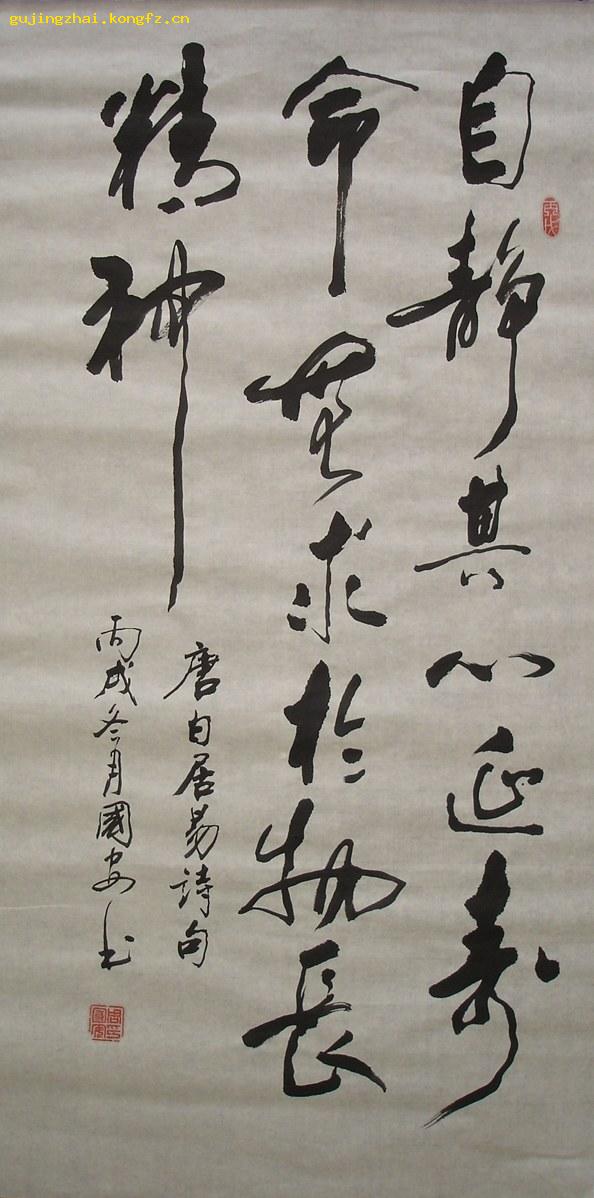 gujingzhai.kongfz.cn
自靜其心延壽
命無求於物長
精神
唐白居易詩句
丙戌冬月國安书